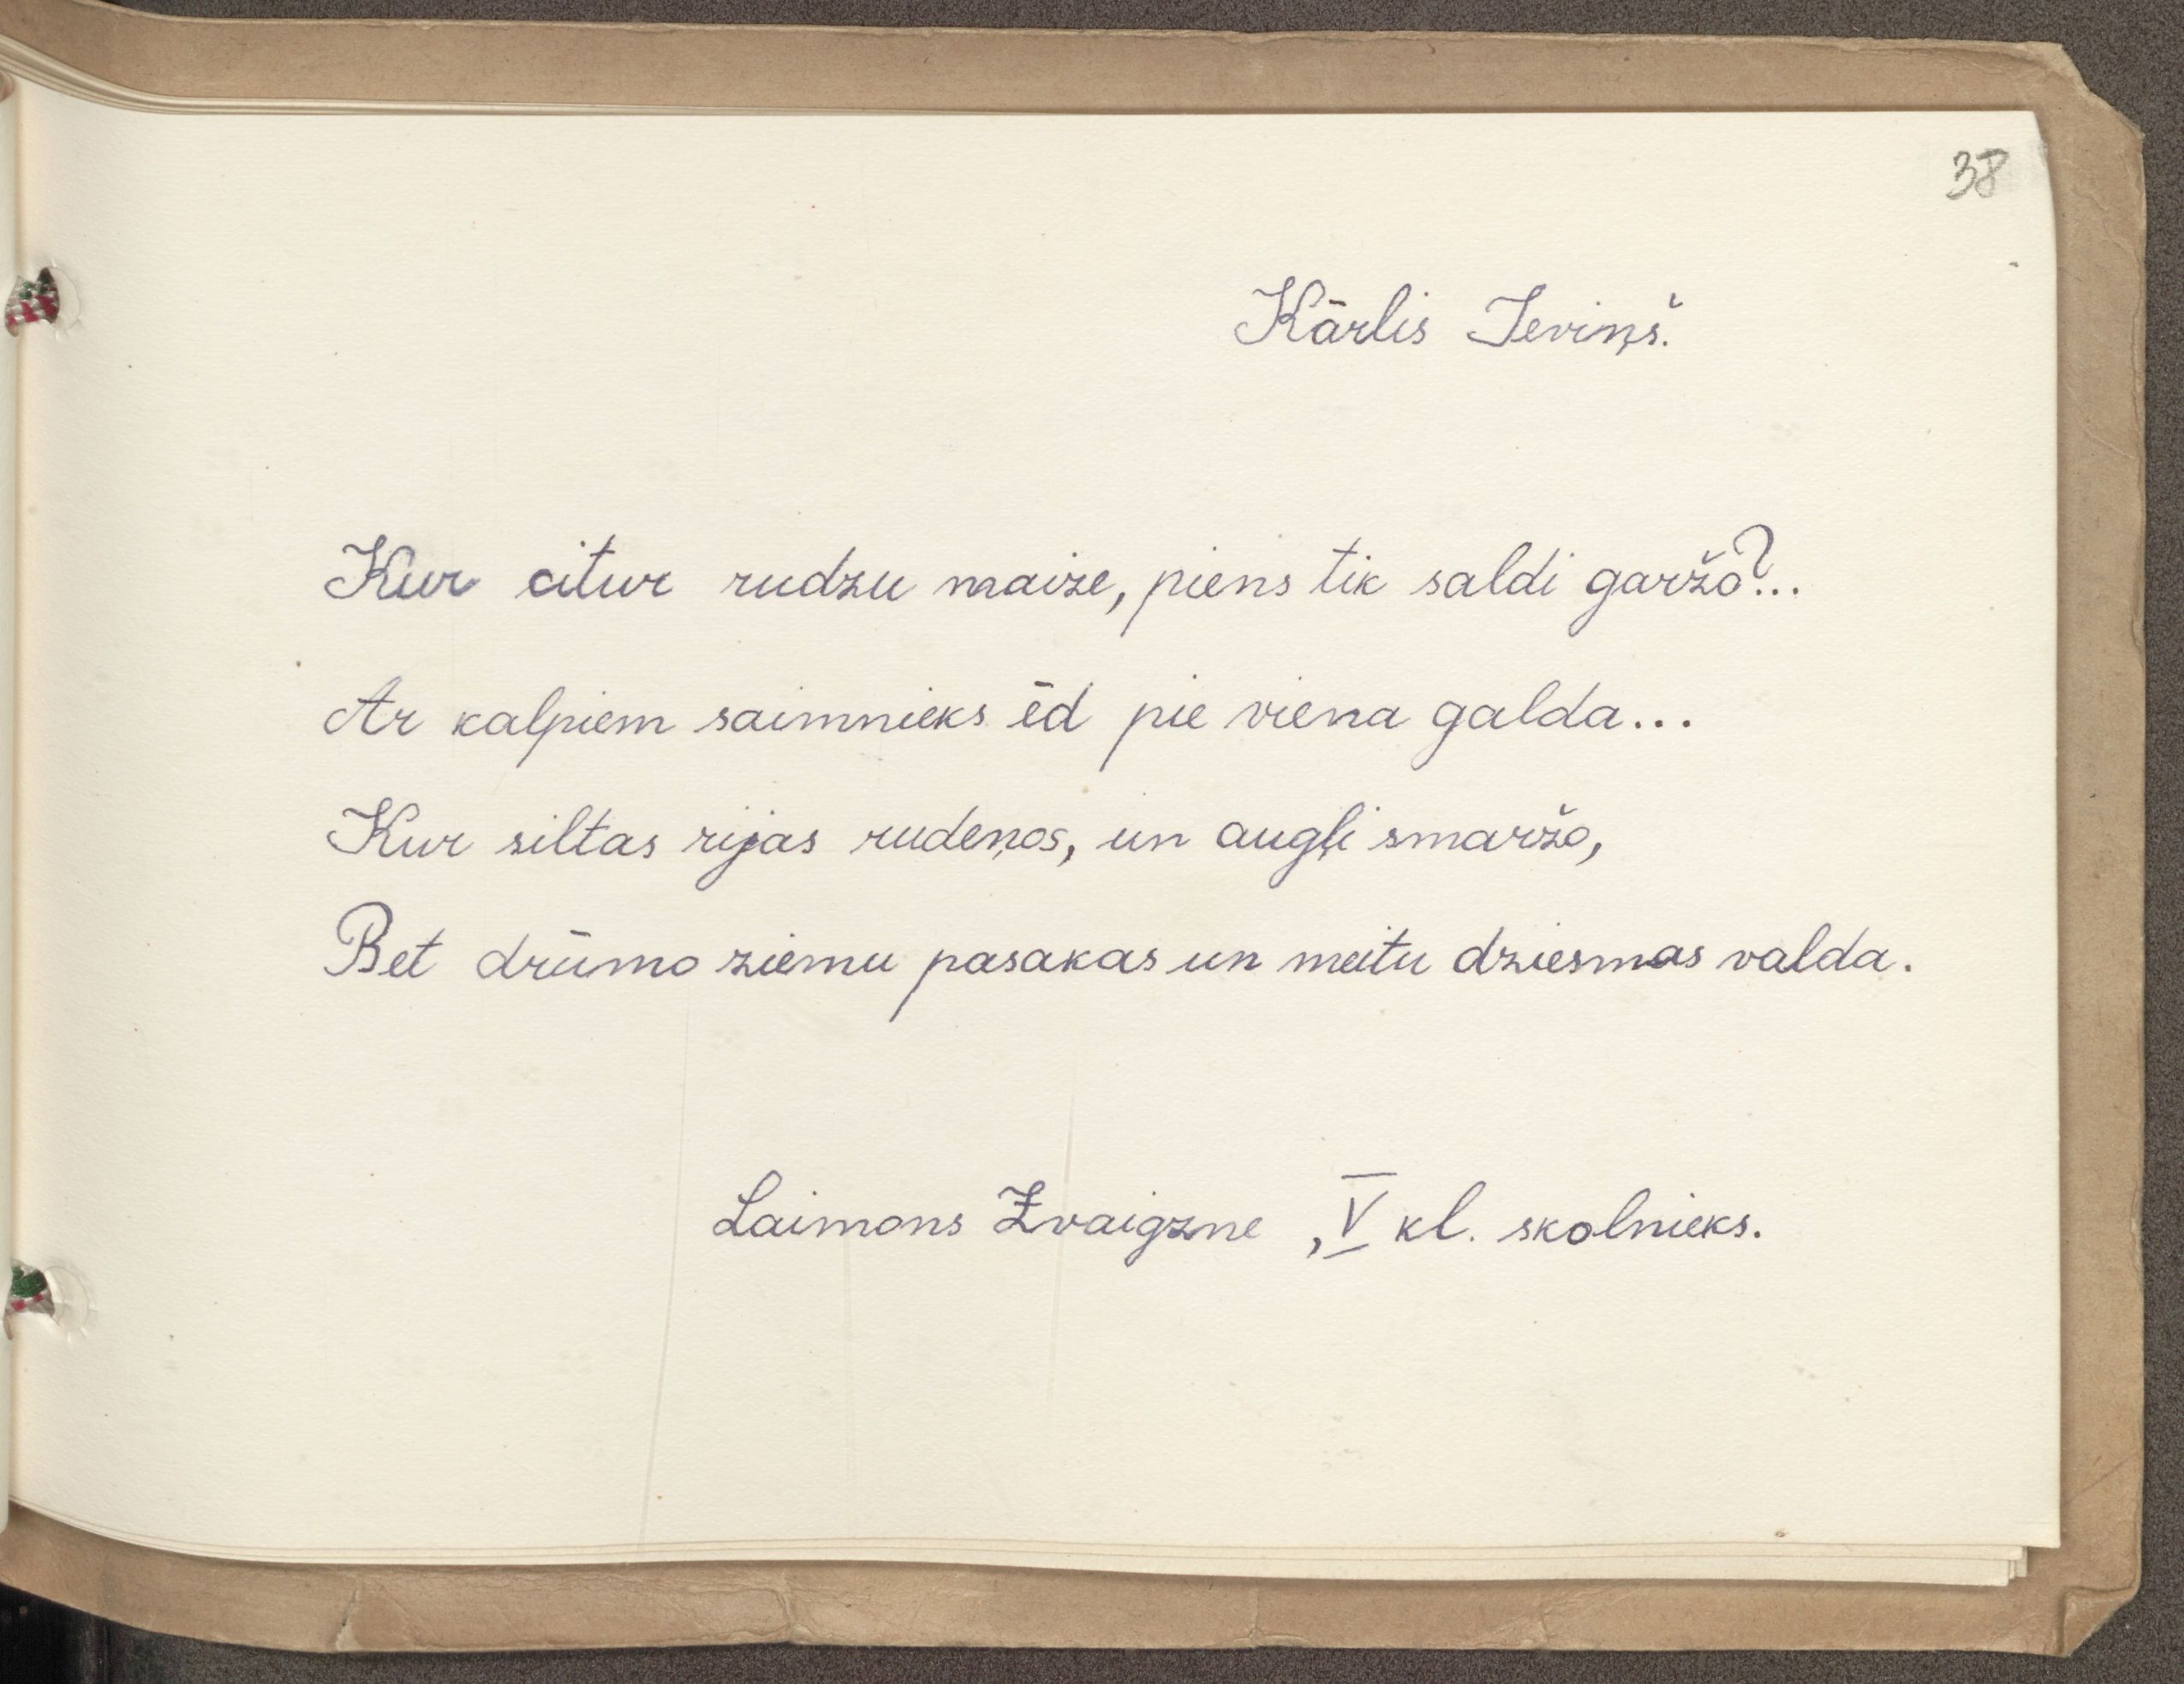 38
Kārlis Ieviņš.
Kur citur rudzu maize, piens tik saldi garžo?...
Ar kalpiem saimnieks ēd pie viena galda...
Kur siltas rijas rudeņos, un augļi smaržo,
Bet drūmo ziemu pasakas un meitu dziesmas valda.
Laimons Zvaigzne, V kl. skolnieks.